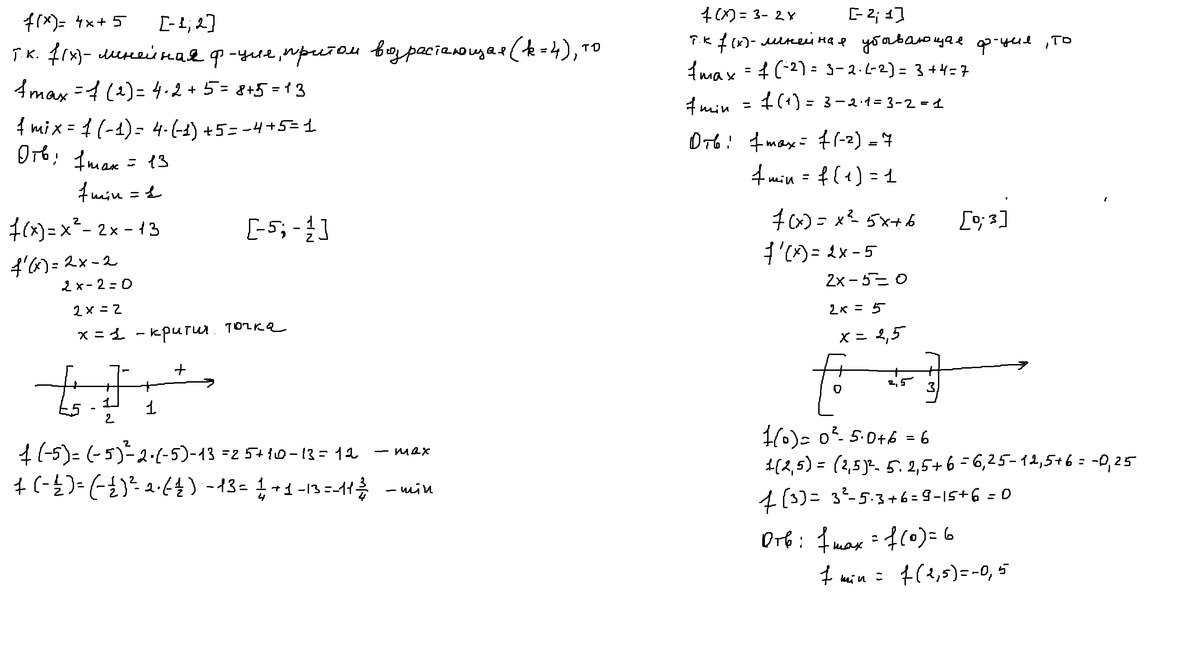 f(x)= 4x+5 [-1; 2]
т.к. f(x)- линейная ф-ция, притом возрастающая (k=4), то
f max = f(2) = 4·2+5 = 8+5 = 13
f mix = f(-1) = 4·(-1)+5 = -4+5 = 1
Отв: f max = 13
f min = 1
f(x)= x² - 2x - 13 [-5; -1/2]
f'(x)= 2x-2
2x-2=0
2x=2
x=1 - критич. точка
- +
-5 -1/2 1
f(-5)=(-5)²-2·(-5)-13=25+10-13=12 - max
f(-1/2)=(-1/2)²-2·(-1/2)-13=1/4+1-13=-11 3/4 - min
f(x)= 3-2x [-2; 1]
т.к f(x)- линейная убывающая ф-ция, то
f max = f(-2) = 3-2·(-2) = 3+4=7
f min = f(1) = 3-2·1=3-2=1
Отв: f max= f(-2)=7
f min = f(1) = 1
f(x) = x²-5x+6 [0; 3]
f'(x)= 2x-5
2x-5=0
2x=5
x=2,5
0 2,5 3
f(0)= 0²-5·0+6=6
f(2,5) = (2,5)²-5·2,5+6=6,25-12,5+6=-0,25
f(3)= 3²-5·3+6=9-15+6=0
Отв: f max = f(0)=6
f min = f(2,5)=-0,5